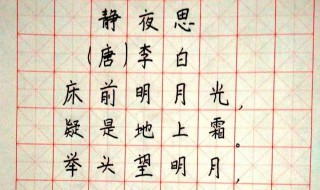 静夜思
(唐)李白
床前明月光,
疑是地上霜。
举头望明月,